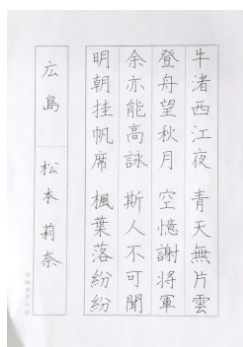 牛渚西江夜 青天無片雲
登舟望秋月 空憶謝將軍
余亦能高詠 斯人不可聞
明朝挂帆席 楓葉落紛紛
広島 松本莉奈